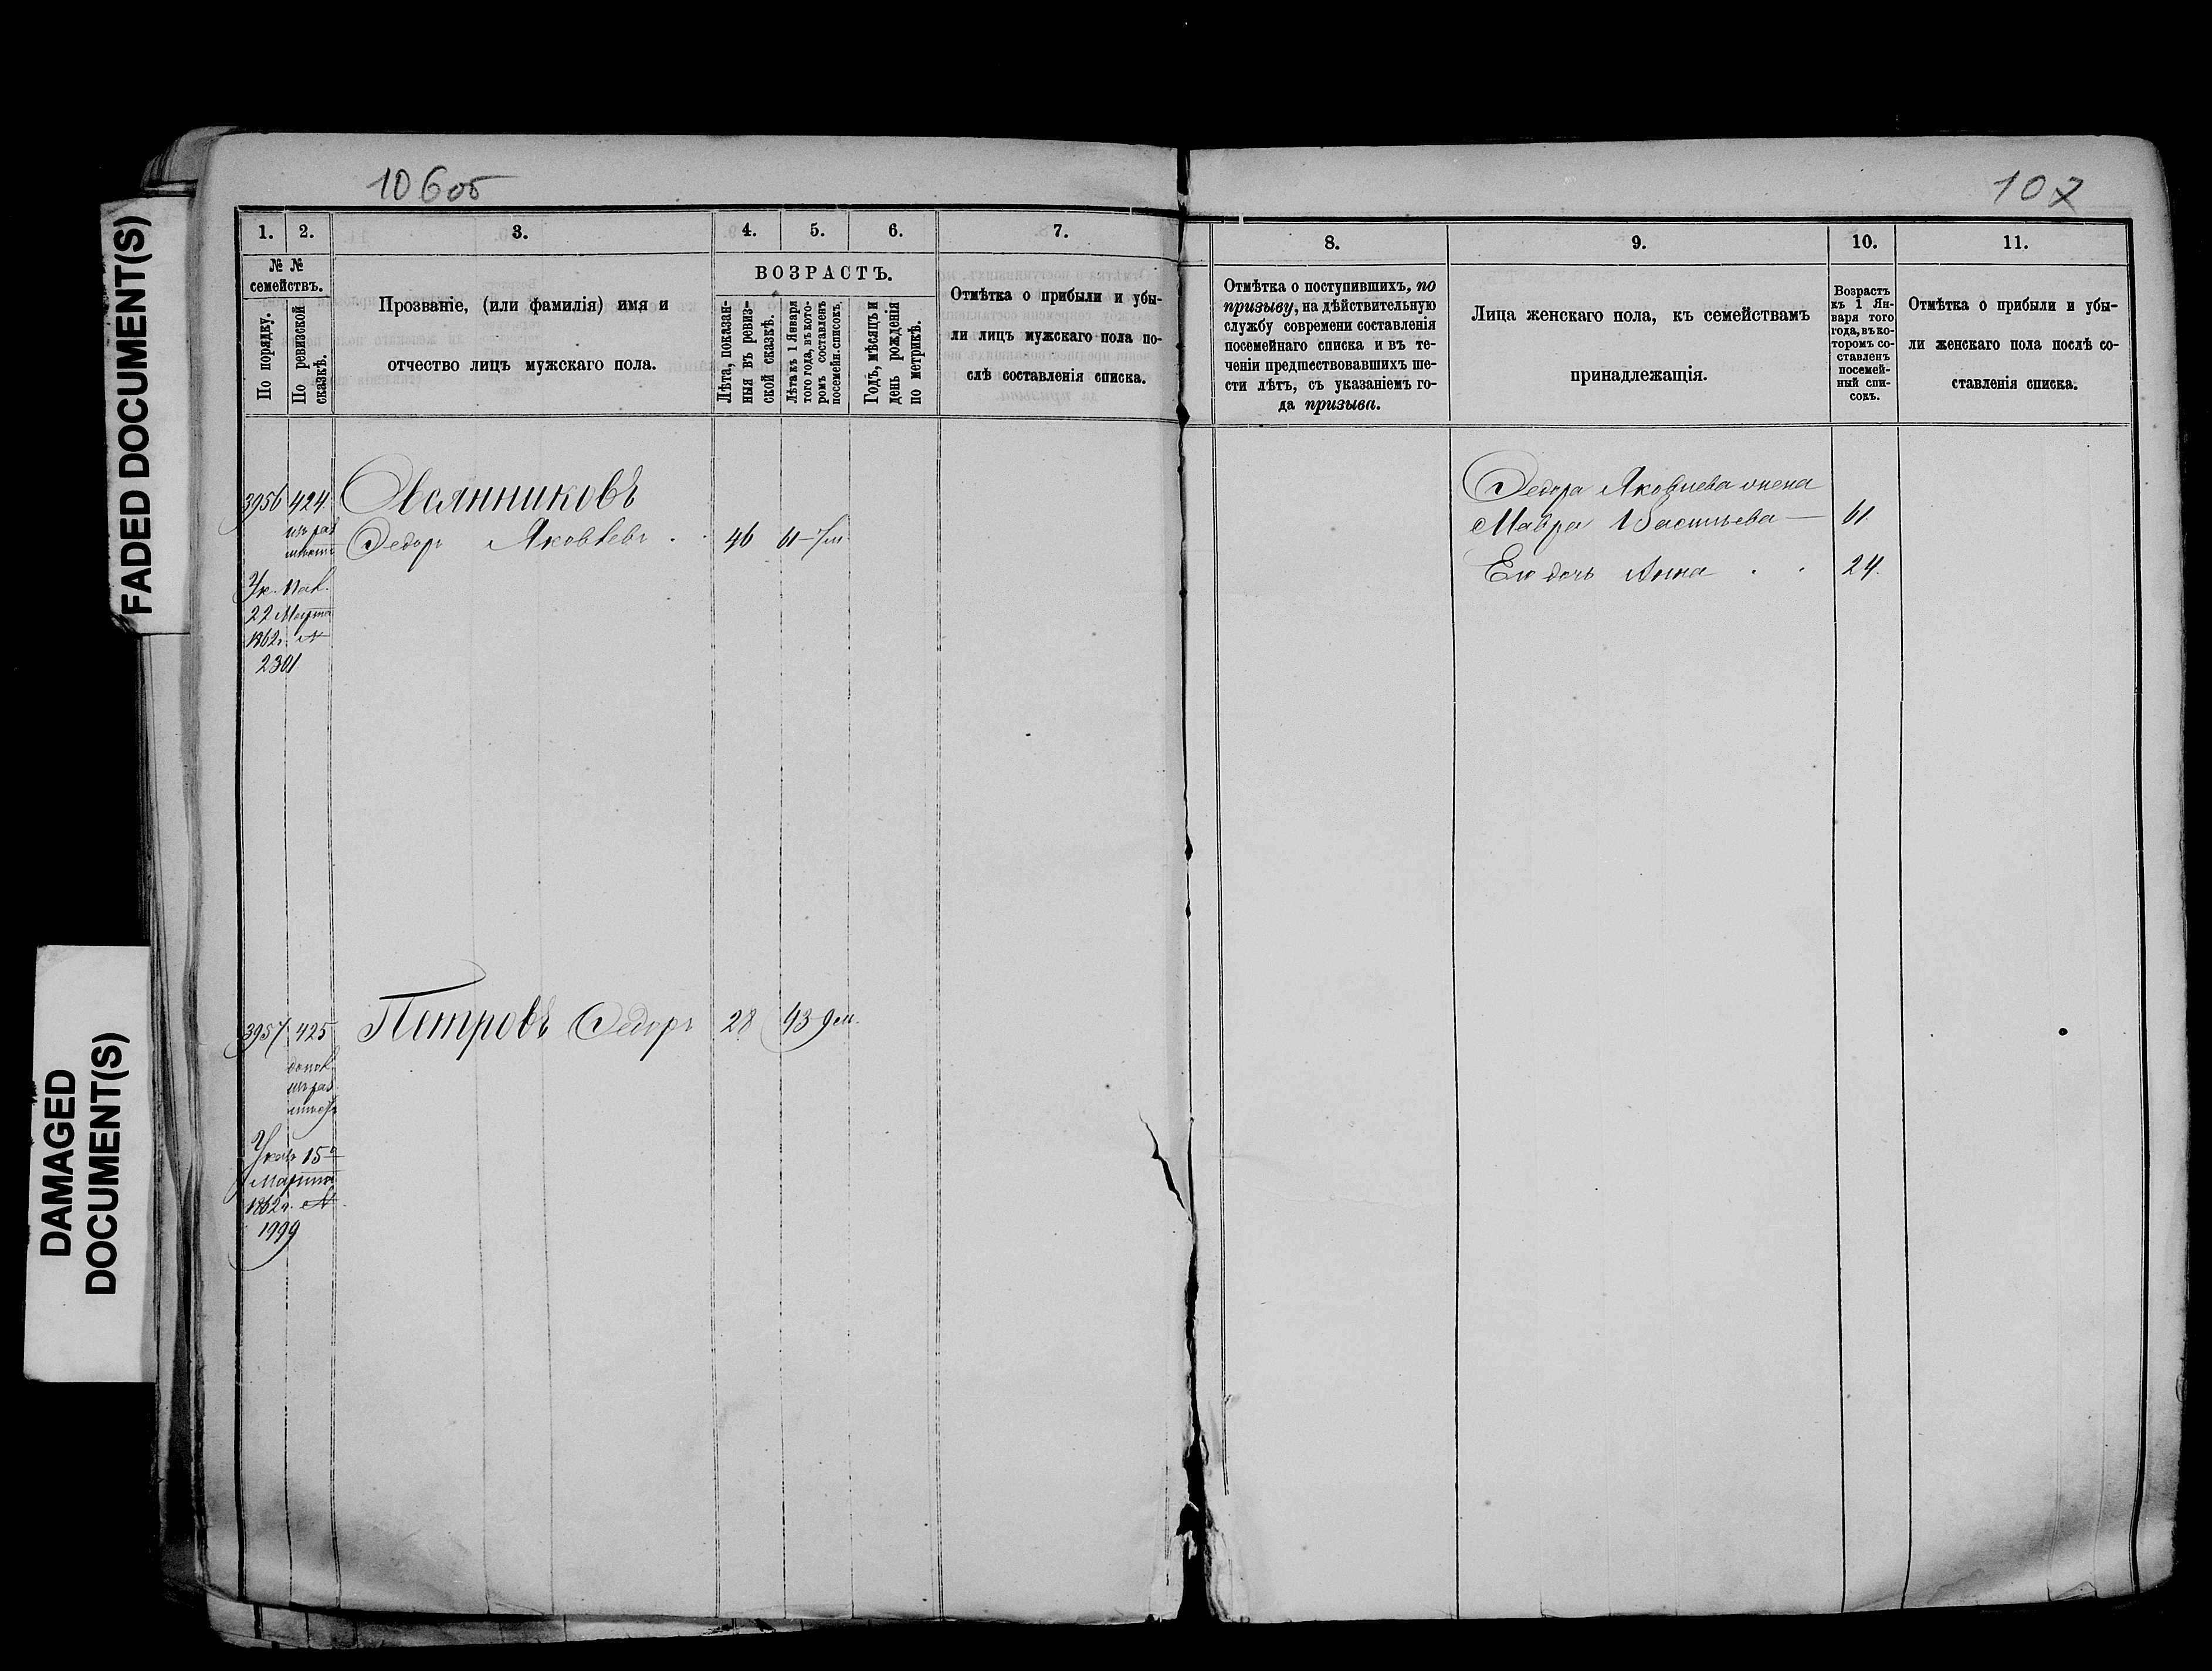 FADED DOCUMENT(S)
DAMAGED
DOCUMENT(S)
106об
1. 2. 3. 4. 5. 6. 7.
№ №
семействъ.
По порядку.
По ревизской
сказкѣ.
Прозваніе, (или фамилія) имя и
отчество лицъ мужскаго пола.
ВОЗРАСТЪ.
Лѣта, показан-
ныя въ ревиз-
ской сказкѣ.
Лѣта къ 1 Января
того года, въ кото-
ромъ составленъ
посемейн. списокъ.
Годъ, мѣсяцъ и
день рожденія
по метрикѣ.
Отмѣтка о прибыли и убы-
ли лицъ мужскаго пола по-
слѣ составленія списка.
3956 424 Овсянниковъ
Федоръ Яковлевъ 46 61-7м
Ук.
22 Марта
1862г. №
2301
3957 425 Петровъ Федоръ 28 43 9м.
Указъ 15
Марта
1862г. №
1999
107
8. 9. 10. 11.
Отмѣтка о поступившихъ, по
призыву, на дѣйствительную
службу современи составленія
посемейнаго списка и въ те-
ченіи предшествовавшихъ ше-
сти лѣтъ, съ указаніемъ го-
да призыва.
Лица женскаго пола, къ семействамъ
принадлежащія.
Возрастъ
къ 1 Ян-
варя того
года, въ ко-
торомъ со-
ставленъ
посемей-
ный спи-
сокъ.
Отмѣтка о прибыли и убы-
ли женскаго пола послѣ со-
ставленія списка.
Федора Яковлева жена
Мавра Васильева — 61
Его дочь Анна . . 24.